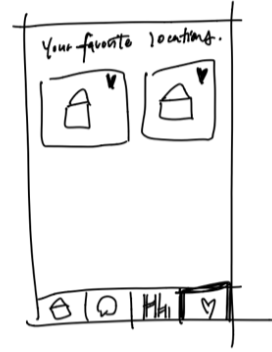 Your favorite locations.